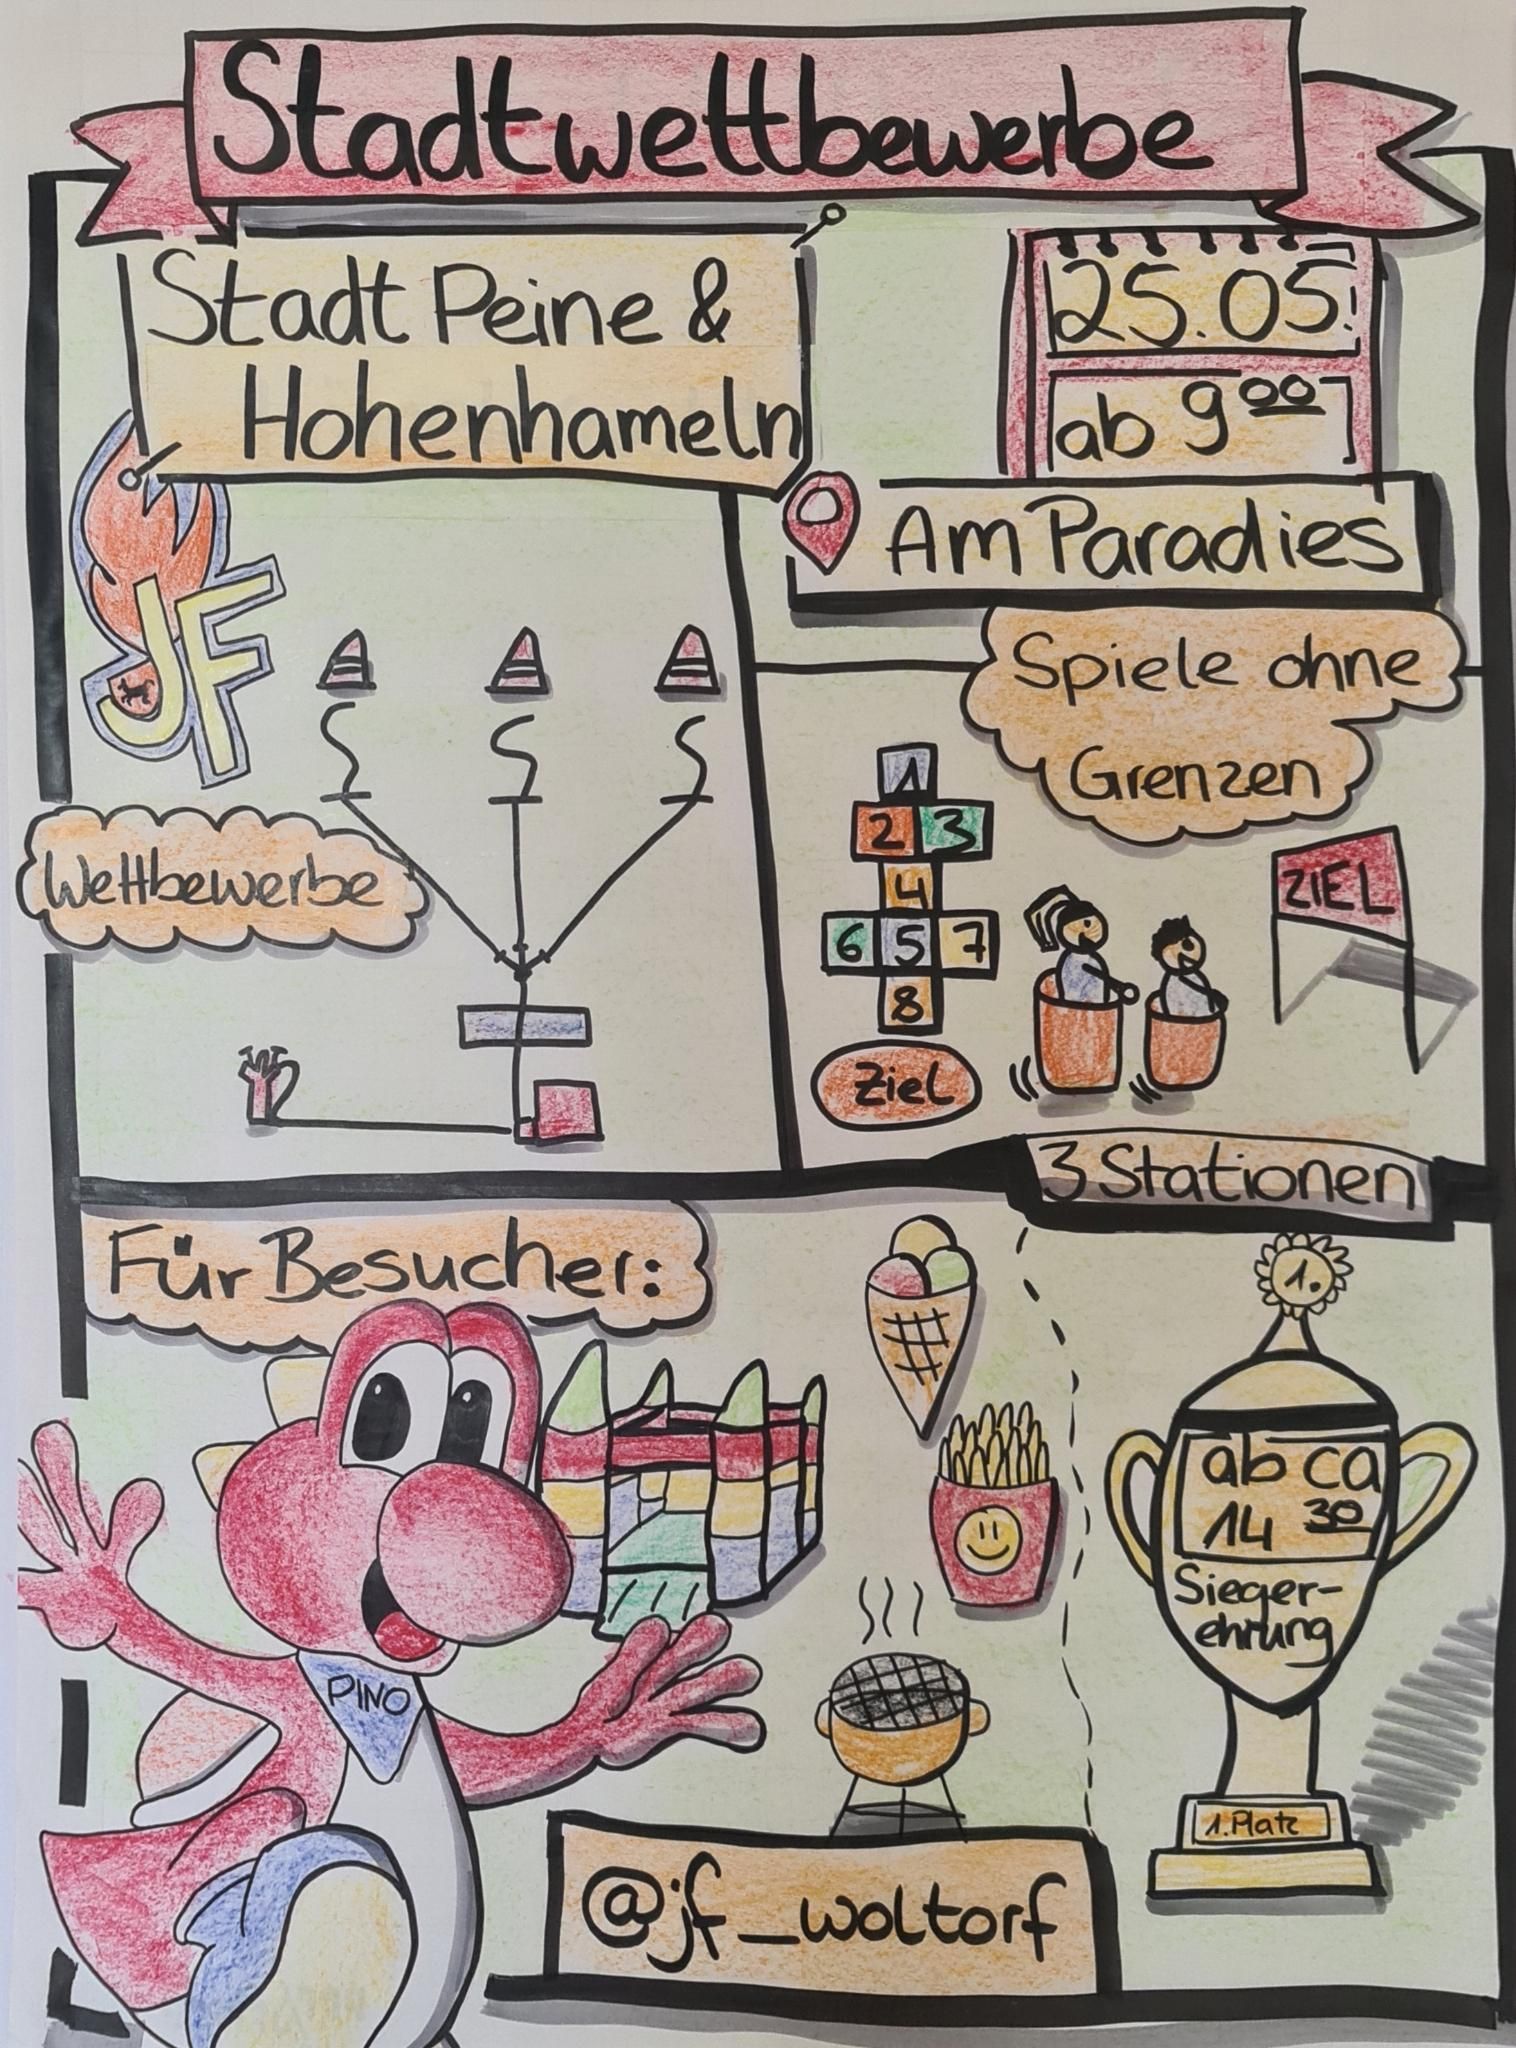 Stadtwettbewerbe
Stadt Peine &
Hohenhameln
25.05!
ab 9⁰⁰
Am Paradies
JF
Spiele ohne
Grenzen
Wettbewerbe
1
2 3
4
6 5 7
8
Ziel
ZIEL
3 Stationen
Für Besucher:
1.
ab ca
14³⁰
Sieger-
ehrung
1. Platz
PINO
@jf_woltorf